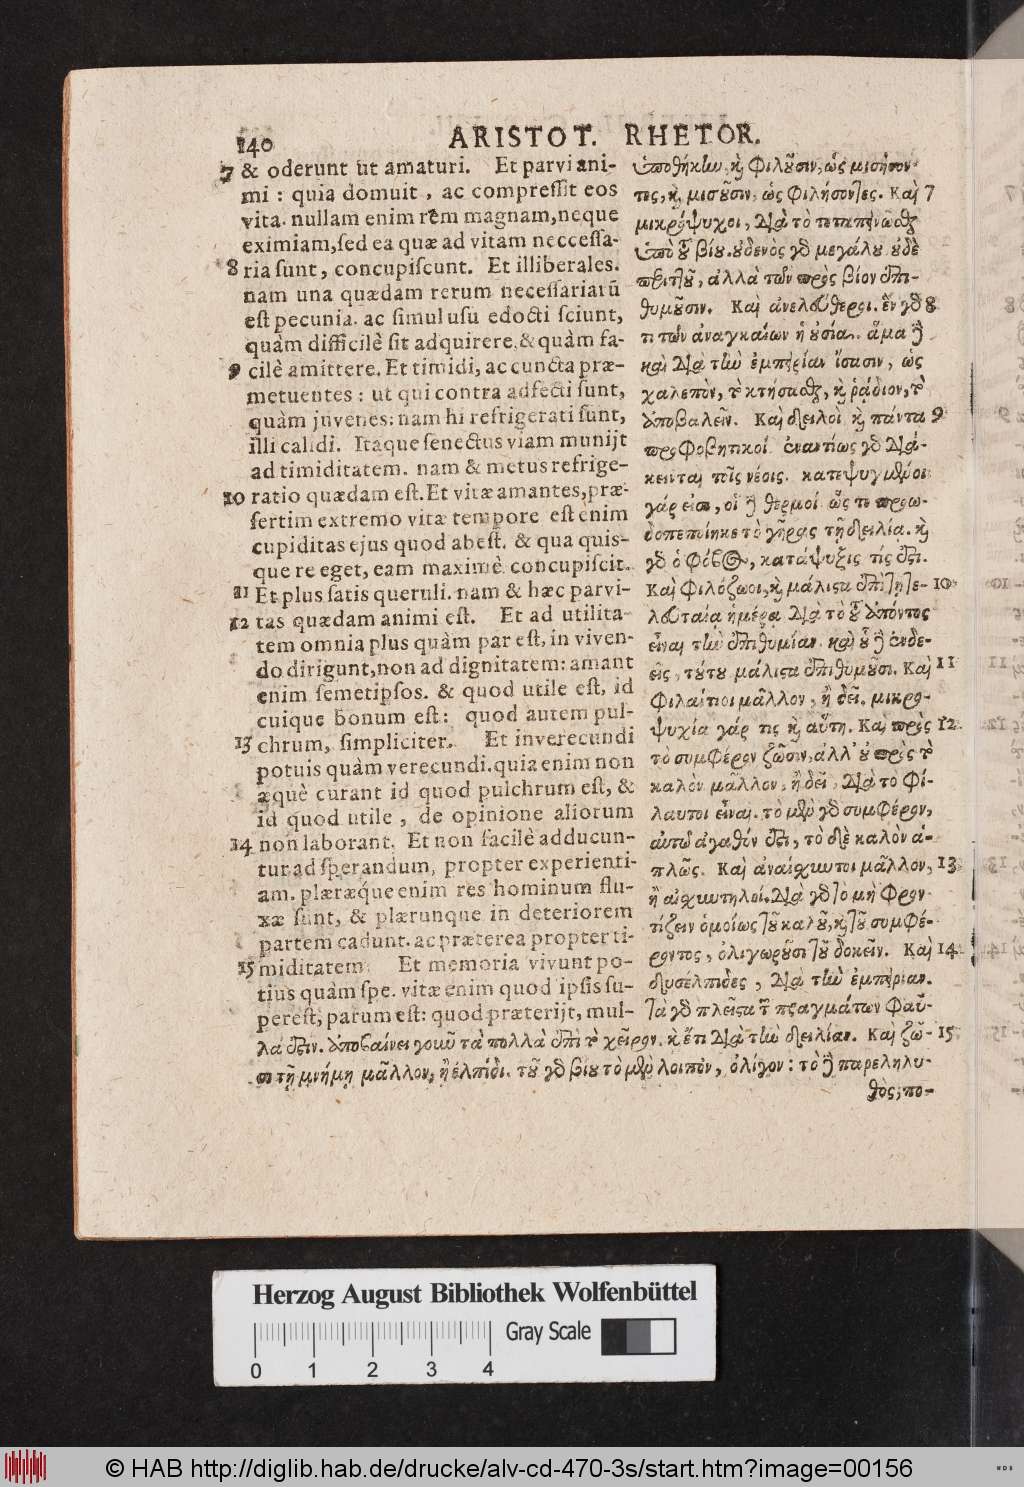 140 ARISTOT. RHETOR.
7 & oderunt ut amaturi. Et parvi ani-
mi : quia domuit, ac compreſſit eos
vita. nullam enim rem magnam, neque
eximiam, ſed ea quæ ad vitam necceſſa-
8 ria ſunt, concupiſcunt. Et illiberales.
nam una quædam rerum neceſſariarũ
eſt pecunia. ac ſimul uſu edocti ſciunt,
quàm difficilè ſit adquirere, & quàm fa-
9 cilè amittere. Et timidi, ac cuncta præ-
metuentes : ut qui contra adfecti ſunt,
quàm juvenes: nam hi refrigerati ſunt,
illi calidi. Itaque ſenectus viam munijt
ad timiditatem. nam & metus refrige-
10 ratio quædam eſt. Et vitæ amantes, præ-
ſertim extremo vitæ tempore eſt enim
cupiditas ejus quod abeſt. & qua quis-
que re eget, eam maximè concupiſcit.
11 Et plus ſatis queruli. nam & hæc parvi-
12 tas quædam animi eſt. Et ad utilita-
tem omnia plus quàm par eſt, in viven-
do dirigunt, non ad dignitatem: amant
enim ſemetipſos. & quod utile eſt, id
cuique bonum eſt: quod autem pul-
13 chrum, ſimpliciter. Et inverecundi
potuis quàm verecundi. quia enim non
æquè curant id quod pulchrum eſt, &
id quod utile, de opinione aliorum
14 non laborant. Et non facilè adducun-
tur ad ſperandum, propter experienti-
am. plæræque enim res hominum flu-
xæ ſunt, & plærunque in deteriorem
partem cadunt. ac præterea propter ti-
15 miditatem. Et memoria vivunt po-
tius quàm ſpe. vitæ enim quod ipſis ſu-
pereſt, parum eſt: quod præterijt, mul-
ὑποθήκην, καὶ φιλοῦσιν, ὡς μισήσον-
τες, καὶ μισοῦσιν, ὡς φιλήσοντες. Καὶ 7
μικρόψυχοι, διὰ τὸ τεταπεινῶσθαι
ὑπὸ τοῦ βίου. οὐδενὸς γὰρ μεγάλου οὐδὲ
περιττοῦ, ἀλλὰ τῶν πρὸς βίον ἐπι-
θυμοῦσιν. Καὶ ἀνελεύθεροι. ἓν γάρ 8
τι τῶν ἀναγκαίων ἡ οὐσία. ἅμα δὲ
καὶ διὰ τὴν ἐμπειρίαν ἴσασιν, ὡς
χαλεπὸν, τὸ κτήσασθαι, καὶ ῥᾴδιον, τὸ
ἀποβαλεῖν. Καὶ δειλοὶ καὶ πάντα 9
προφοβητικοί. ἐναντίως γὰρ διά-
κεινται τοῖς νέοις. κατεψυγμένοι
γάρ εἰσι, οἱ δὲ θερμοί. ὥς τε προω-
δοπεποίηκε τὸ γῆρας τῇ δειλίᾳ. καὶ
γὰρ ὁ φόβος, κατάψυξίς τίς ἐστι.
Καὶ φιλόζωοι, καὶ μάλιστα ἐπὶ τῇ τε- 10
λευταίᾳ ἡμέρᾳ διὰ τὸ τοῦ ἀπόντος
εἶναι τὴν ἐπιθυμίαν. καὶ οὗ δὲ ἐνδε-
εῖς, τούτου μάλιστα ἐπιθυμοῦσι. Καὶ 11
φιλαίτιοι μᾶλλον, ἢ δεῖ. μικρο-
ψυχία γάρ τις καὶ αὕτη. Καὶ πρὸς 12
τὸ συμφέρον ζῶσιν, ἀλλ' οὐ πρὸς τὸ
καλὸν μᾶλλον, ἢ δεῖ, διὰ τὸ φί-
λαυτοι εἶναι. τὸ μὲν γὰρ συμφέρον,
αὐτῷ ἀγαθόν ἐστι, τὸ δὲ καλὸν ἁ-
πλῶς. Καὶ ἀναίσχυντοι μᾶλλον, 13
ἢ αἰσχυντηλοί. διὰ γὰρ τὸ μὴ φρον-
τίζειν ὁμοίως τοῦ καλοῦ, καὶ τοῦ συμφέ-
ροντος, ὀλιγωροῦσι τοῦ δοκεῖν. Καὶ 14
δυσέλπιδες, διὰ τὴν ἐμπειρίαν.
τὰ γὰρ πλεῖστα τῶν πραγμάτων φαῦ-
λά ἐστιν. ἀποβαίνει γοῦν τὰ πολλὰ ἐπὶ τὸ χεῖρον. καὶ ἔτι διὰ τὴν δειλίαν. Καὶ ζῶ- 15
σι τῇ μνήμῃ μᾶλλον, ἢ ἐλπίδι. τοῦ γὰρ βίου τὸ μὲν λοιπὸν, ὀλίγον : τὸ δὲ παρεληλυ-
θὸς, πο-
Herzog August Bibliothek Wolfenbüttel
0 1 2 3 4 Gray Scale
© HAB http://diglib.hab.de/drucke/alv-cd-470-3s/start.htm?image=00156